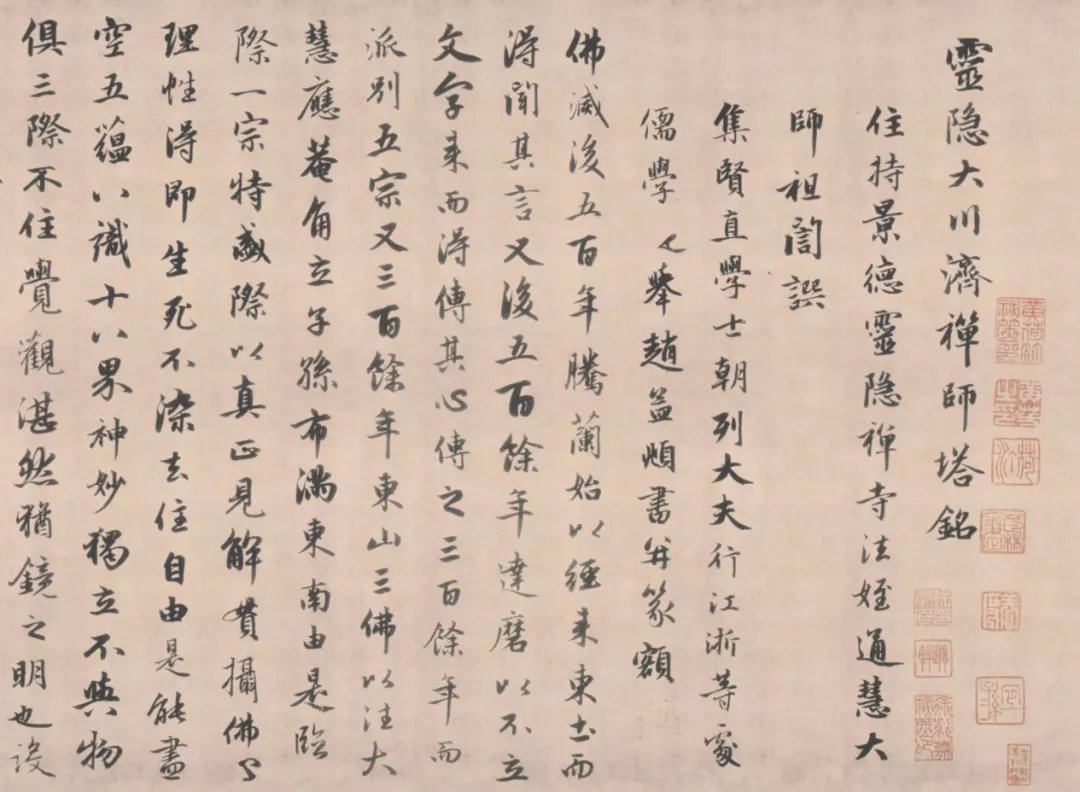 靈隐大川濟禪師塔銘
住持景德靈隐禅寺法姪通慧大
師祖誾譔
集賢直學士朝列大夫行江淅等處
儒學提舉趙孟頫書并篆額
佛滅後五百年騰蘭始以經来東土而
得聞其言又後五百餘年達磨以不立
文字来而得傳其心傳之三百餘年而
派别五宗又三百餘年東山三佛以法大
慧應菴角立子孫布满東南由是臨
際一宗特盛際以真正見解貫攝佛々
理性得即生死不染去住自由是能盡
空五蘊八識十八界神妙獨立不與物
俱三際不住覺觀湛然猶鏡之明也設